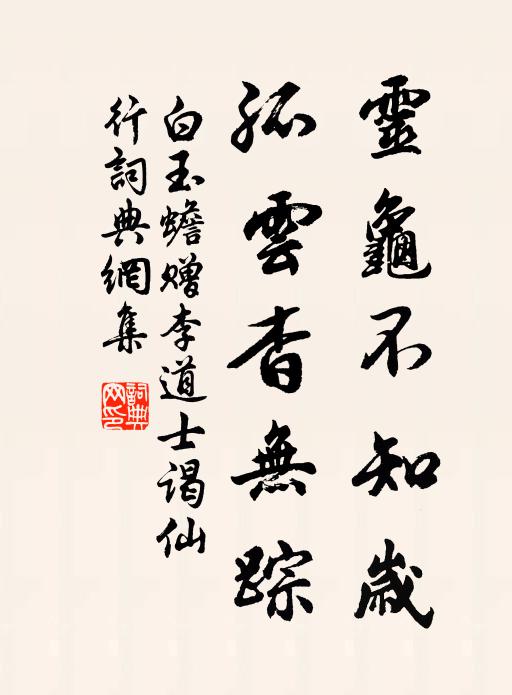 靈龜不知歲
孤雲杳無踪
白玉蟾赠李道士謁仙
行詞典網集
詞典网印